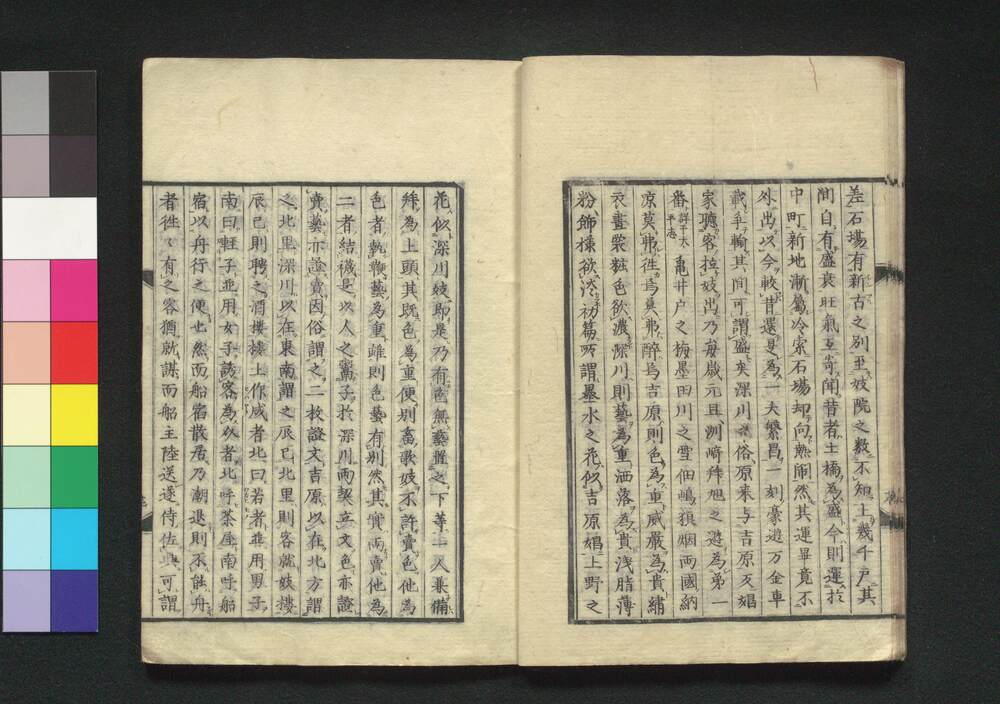 差石場有新古之別至妓院之数不知上幾千戸其
間自有盛衰旺氣互寄聞昔者土橋為盛今則運於
中町新地漸属冷索石場却向熱閙然其運畢竟不
外出以今較昔還是為一大繁昌一刻豪遊万金車
載手輸其間可謂盛矣深川之俗原来与吉原反娼
家聴客拉妓出乃毎歳元旦洲嵜拝旭之遊為第一
番詳于太平志亀井戸之梅墨田川之雪佃嶋狼烟両國納
凉莫弗徃焉莫弗醉焉吉原則色為重威嚴為貴繡
衣畫裳粧色欲濃深川則藝為重洒落為貴浅脂薄
粉飾様欲淡初篇所謂墨水之花似吉原娼上野之
花似深川妓即是乃有色無藝置之下等一人兼備
為上頭其既色為重便別畜歌妓不許賣色他為
色者執藝為重雖則色藝有別然其實両賣他為
二者結襪是以人之蜑子於深川両契立文色亦證
賣藝亦證賣因俗謂之二枚證文吉原以在北方謂
之北里深川以在東南謂之辰巳北里則客就妓樓
辰巳則聘之酒樓樓上作威者北曰若者并用男子
南曰軽子並用女子誘客為久者北呼茶屋南呼船
宿以舟行之便也然而船宿散居乃潮退則不能舟
者徃々有之客猶就謀而船主陸送逐侍佐興可謂